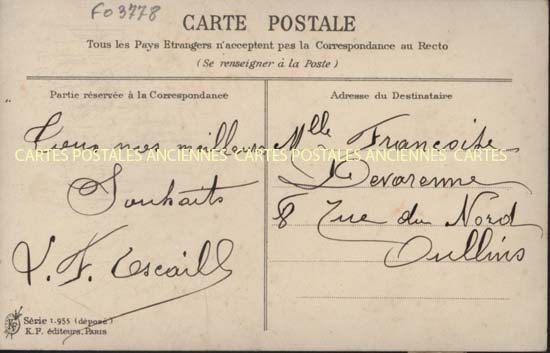 Fo3778
CARTE POSTALE
Tous les Pays Etrangers n'acceptent pas la Correspondance au Recto
(Se renseigner à la Poste)
Partie réservée à la Correspondance
meilleurs
Souhaits
Adresse du Destinataire
Mlle Françoise
Devarenne
8 Rue du Nord
Oullins
CARTES POSTALES ANCIENNES CARTES POSTALES ANCIENNES CARTES POSTALES
Série 1.955 (déposé)
K. F. éditeurs, PARIS